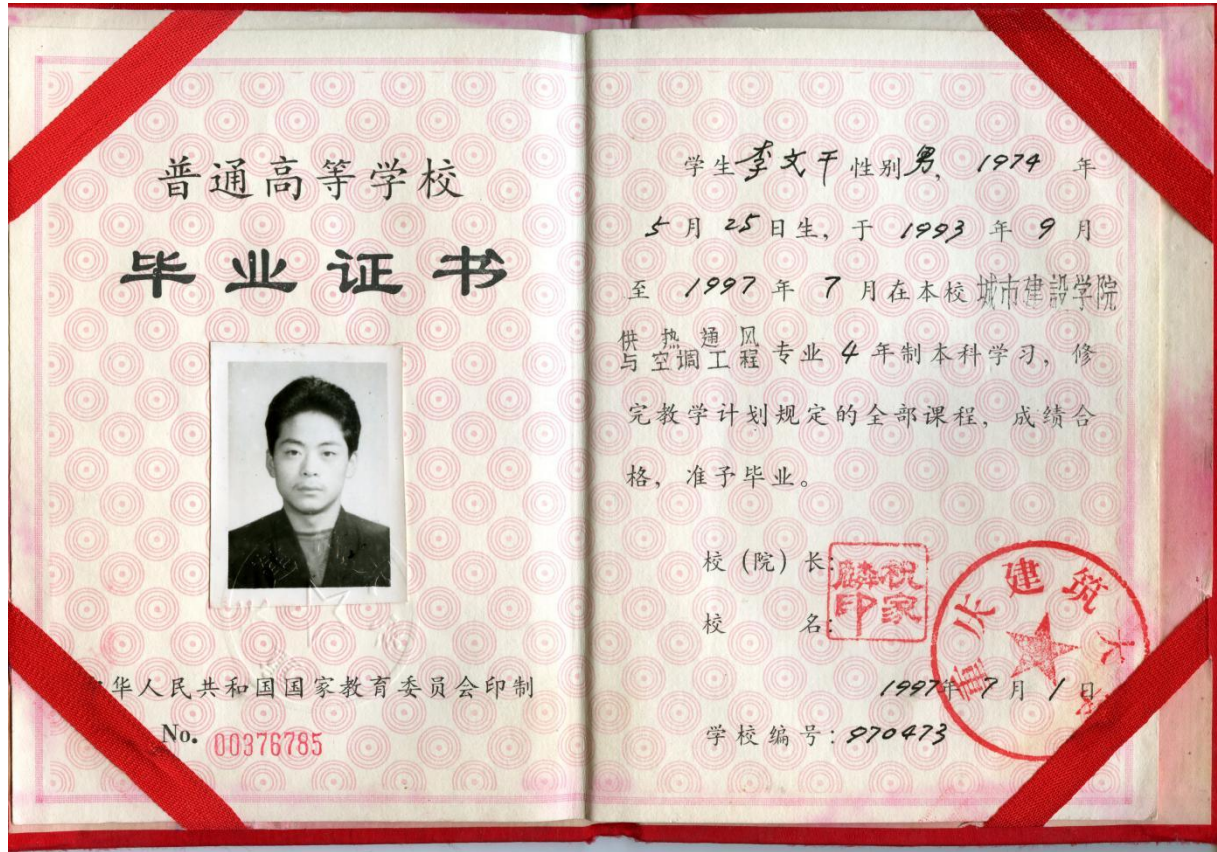 普通高等学校
毕业证书
华人民共和国国家教育委员会印制
No. 00376785
学生李文干性别男, 1974 年
5 月 25 日生, 于 1993 年 9 月
至 1997 年 7 月在本校城市建設学院
供热通风
与空调工程专业 4 年制本科学习, 修
完教学计划规定的全部课程, 成绩合
格, 准予毕业。
校(院)长:
祝家麟印
校 名:
重庆建筑大
1997年 7 月 1 日
学校编号: 970473